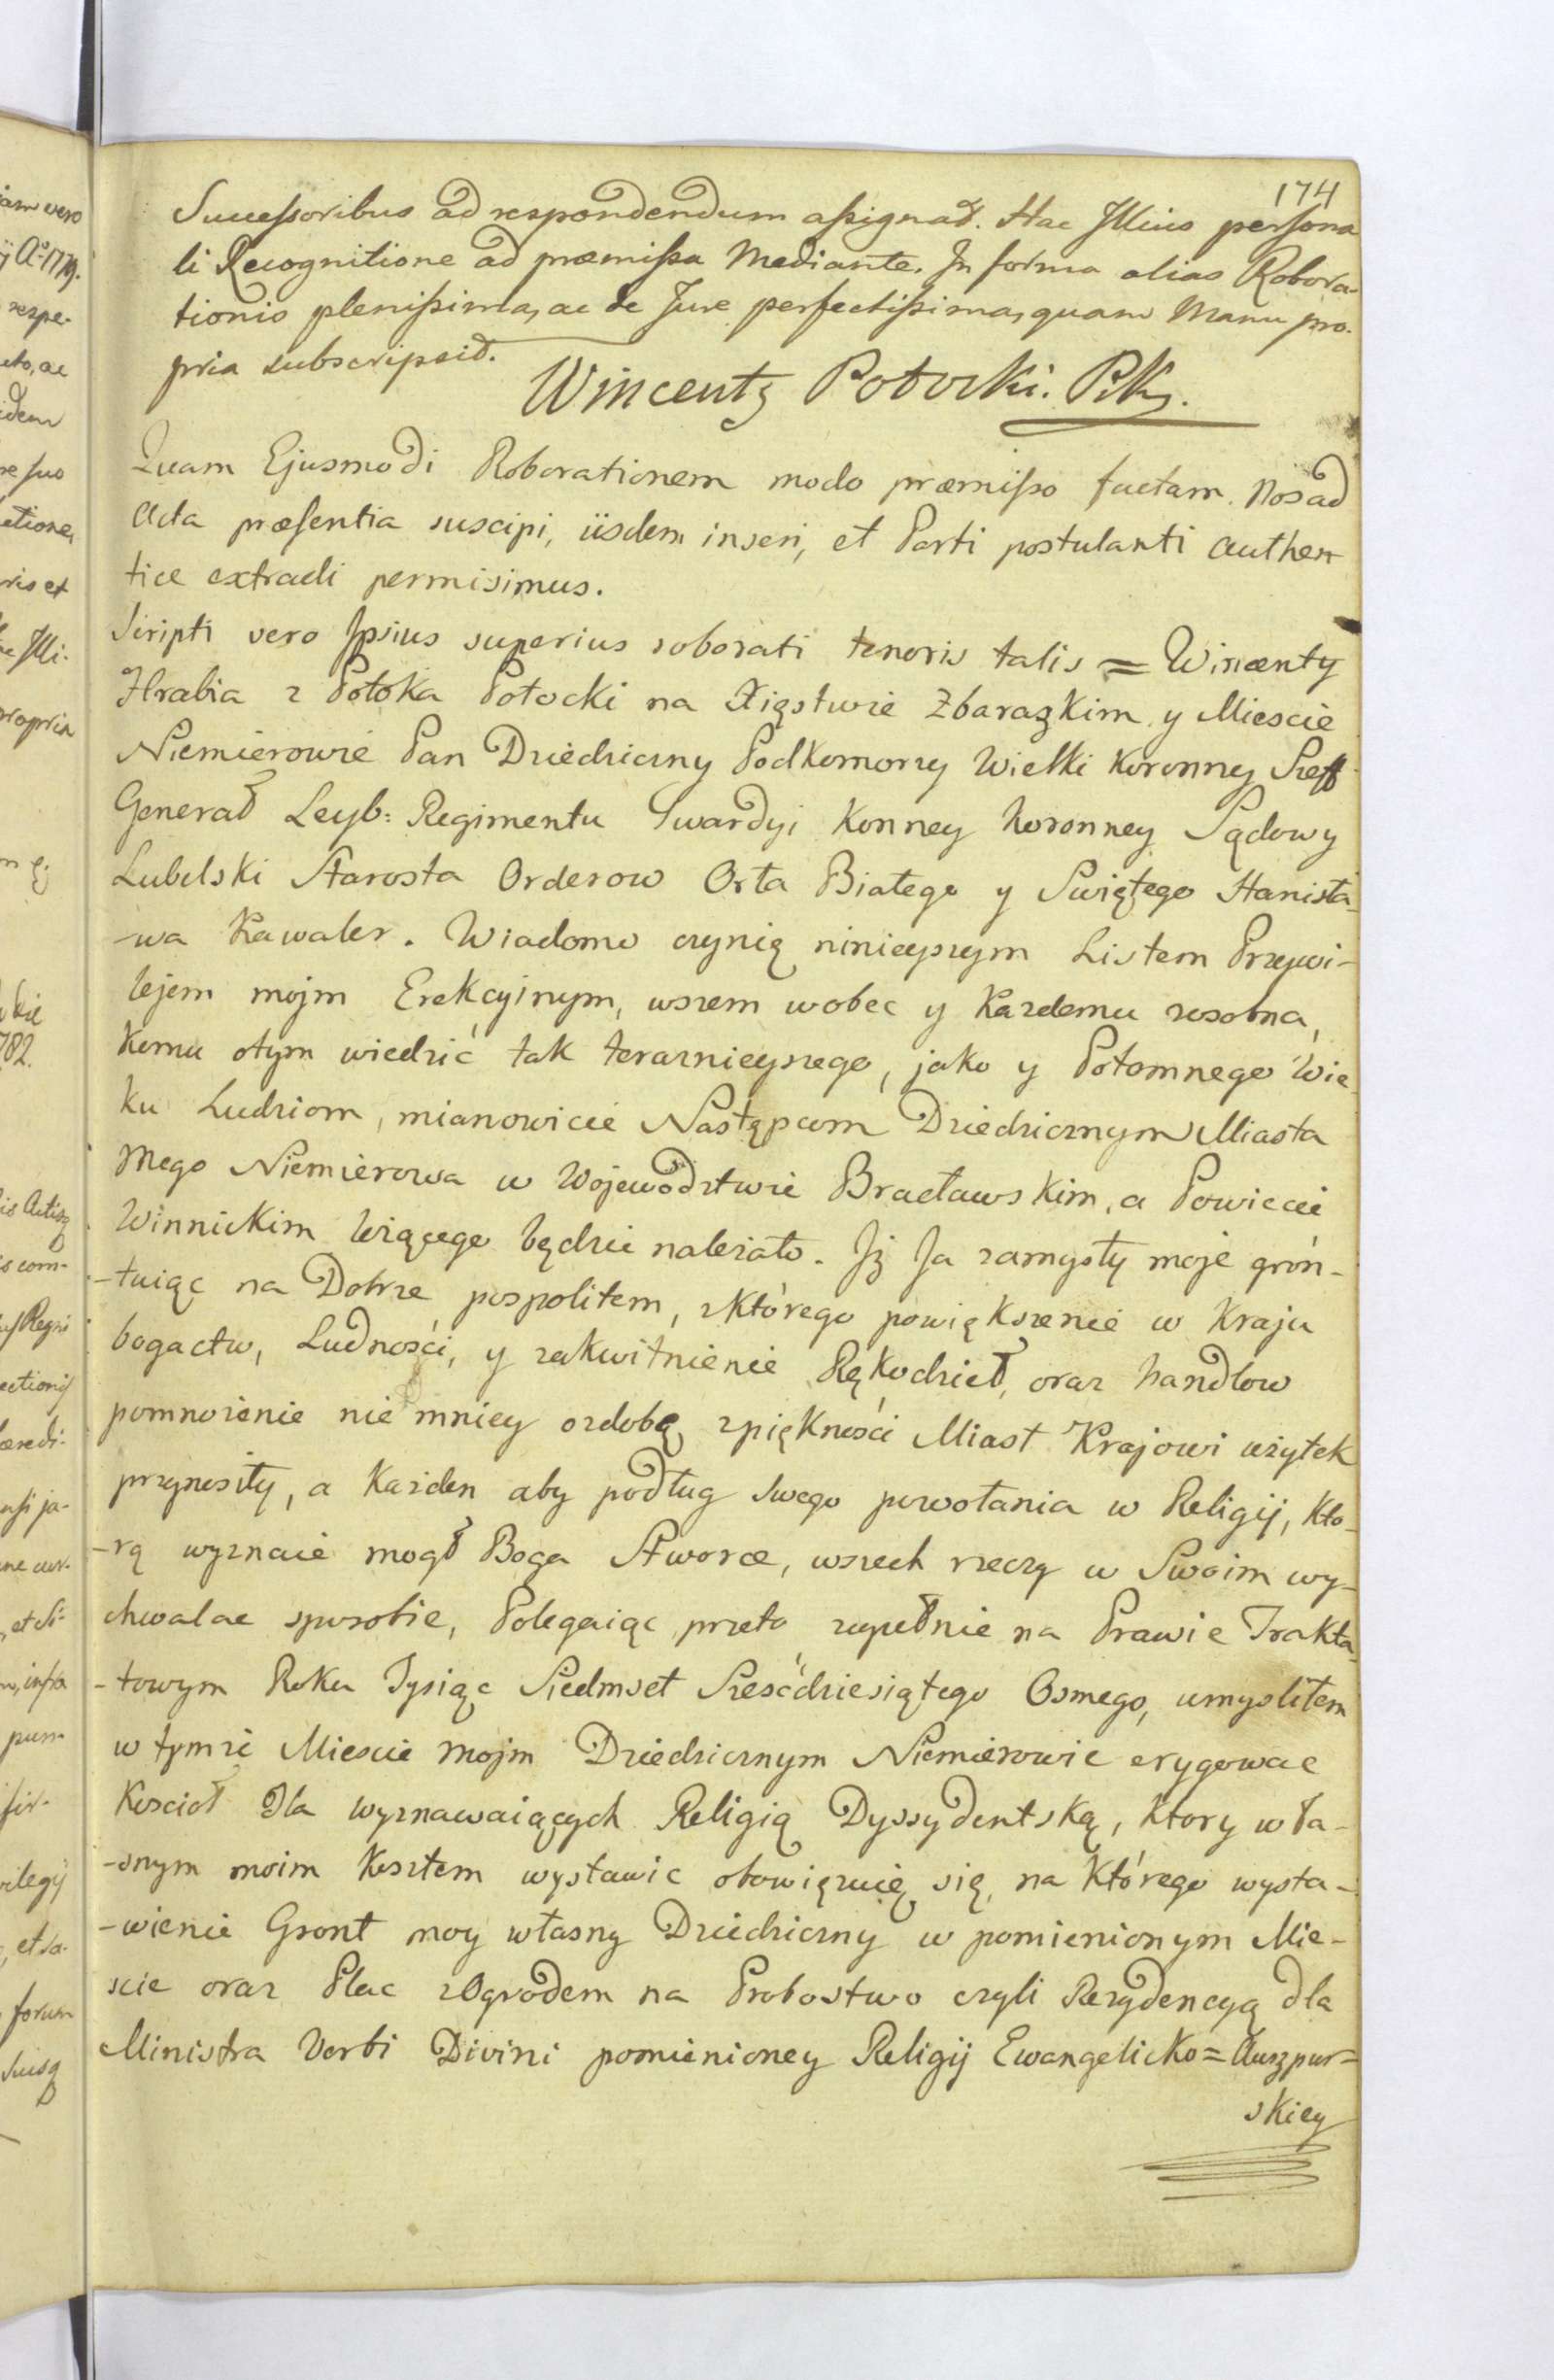 174
Successoribus ad respondendum assignat. Hac Illius persona
li Recognitione ad præmissa Mediante. In forma alias Robora-
tionis plenissima, ac de Jure perfectissima, quam Manu pro-
pria subscripsit.
Wincenty Potocki. P.K.
Quam Ejusmodi Roborationem modo præmisso factam. Nos ad
Acta præsentia suscipi, iisdem inseri, et Parti postulanti authen
tice extradi permisimus.
Scripti vero Ipsius superius roborati tenoris talis = Wincenty
Hrabia z Potoka Potocki na Xięstwie Zbarazkim y Miescie
Niemierowie Pan Dziedziczny Podkomorzy Wielki Koronny Szeff
Generał Leyb: Regimentu Gwardyi Konney Koronney Sądowy
Lubelski Starosta Orderow Orła Białego y Swiętego Stanisła-
-wa Kawaler. Wiadomo czynię ninieyszym Listem Przywi-
lejem mojm Erekcyinym, wszem wobec y Kazdemu zosobna,
Komu otym wiedzić tak terazniejszego, jako y Potomnego Wie-
ku Ludziom, mianowicie Następcom Dziedzicznym Miasta
Mego Niemierowa w Wojewodztwie Bracławskim, a Powiecie
Winnickim leżącego będzie należało. Jż Ja zamysły moje grón-
-tuiąc na Dobrze pospolitem, z którego powiększenie w Kraju
bogactw, Ludności, y zakwitnienie Rękodzieł, oraz handlow
pomnożenie nie mniey ozdobą z piękności Miast Krajowi użytek
przynosiły, a Każden aby podług swego powołania w Religij, Kto-
-rą wyznaie mogł Boga Stworcę, wszech rzeczy w Swoim wy-
chwalac sposobie, Polegaiąc przeto zupełnie na Prawie Trakta-
-towym Roku Tysiąc Siedmset Sześćdziesiątego Osmego, umysliłem
w tymże Miescie mojm Dziedzicznym Niemierowie erygowac
Koscioł Dla wyznawaiących Religią Dyssydentską, Ktory wła-
-snym moim Kosztem wystawic obowięzuię się, na Którego wysta-
-wienie Gront moy własny Dziedziczny w pomienionym Mie-
scie oraz Plac z Ogrodem na Probostwo czyli Rezydencyą dla
Ministra Verbi Divini pomienioney Religij Ewangelicko = Auszpur=
skiey